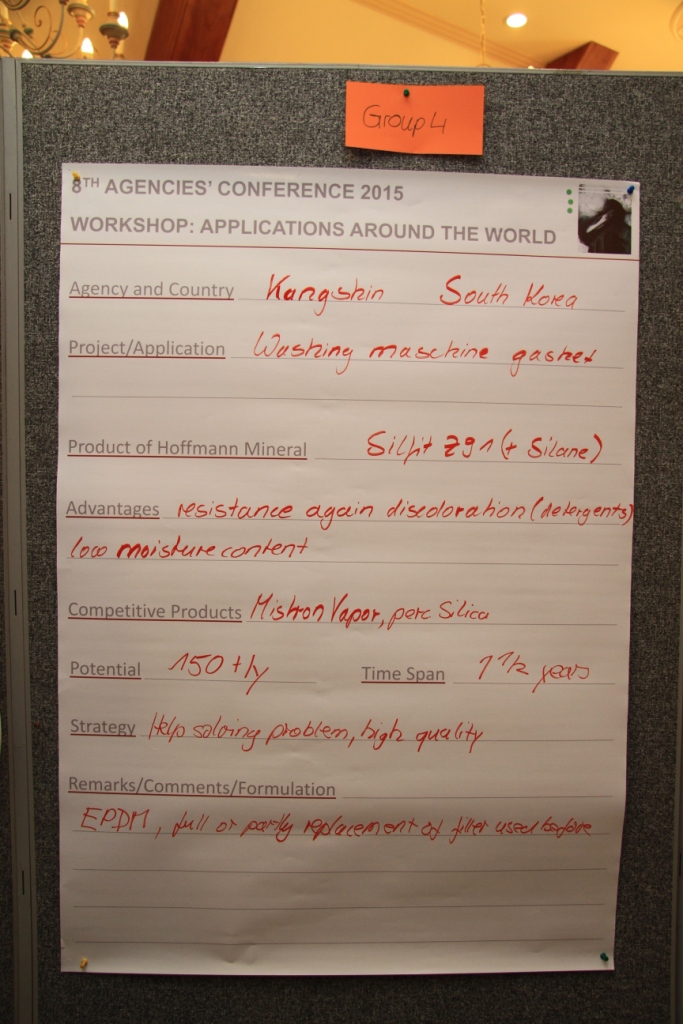 Group 4
8TH AGENCIES' CONFERENCE 2015
WORKSHOP: APPLICATIONS AROUND THE WORLD
Agency and Country Kangshin South Korea
Project/Application Washing maschine gasket
Product of Hoffmann Mineral Silfit Z91 (+ Silane)
Advantages resistance again discoloration (detergents)
low moisture content
Competitive Products Mistron Vapor, perc Silica
Potential 150 t/y Time Span 1 1/2 years
Strategy Help solving problem, high quality
Remarks/Comments/Formulation
EPDM, full or partly replacement of filler used before